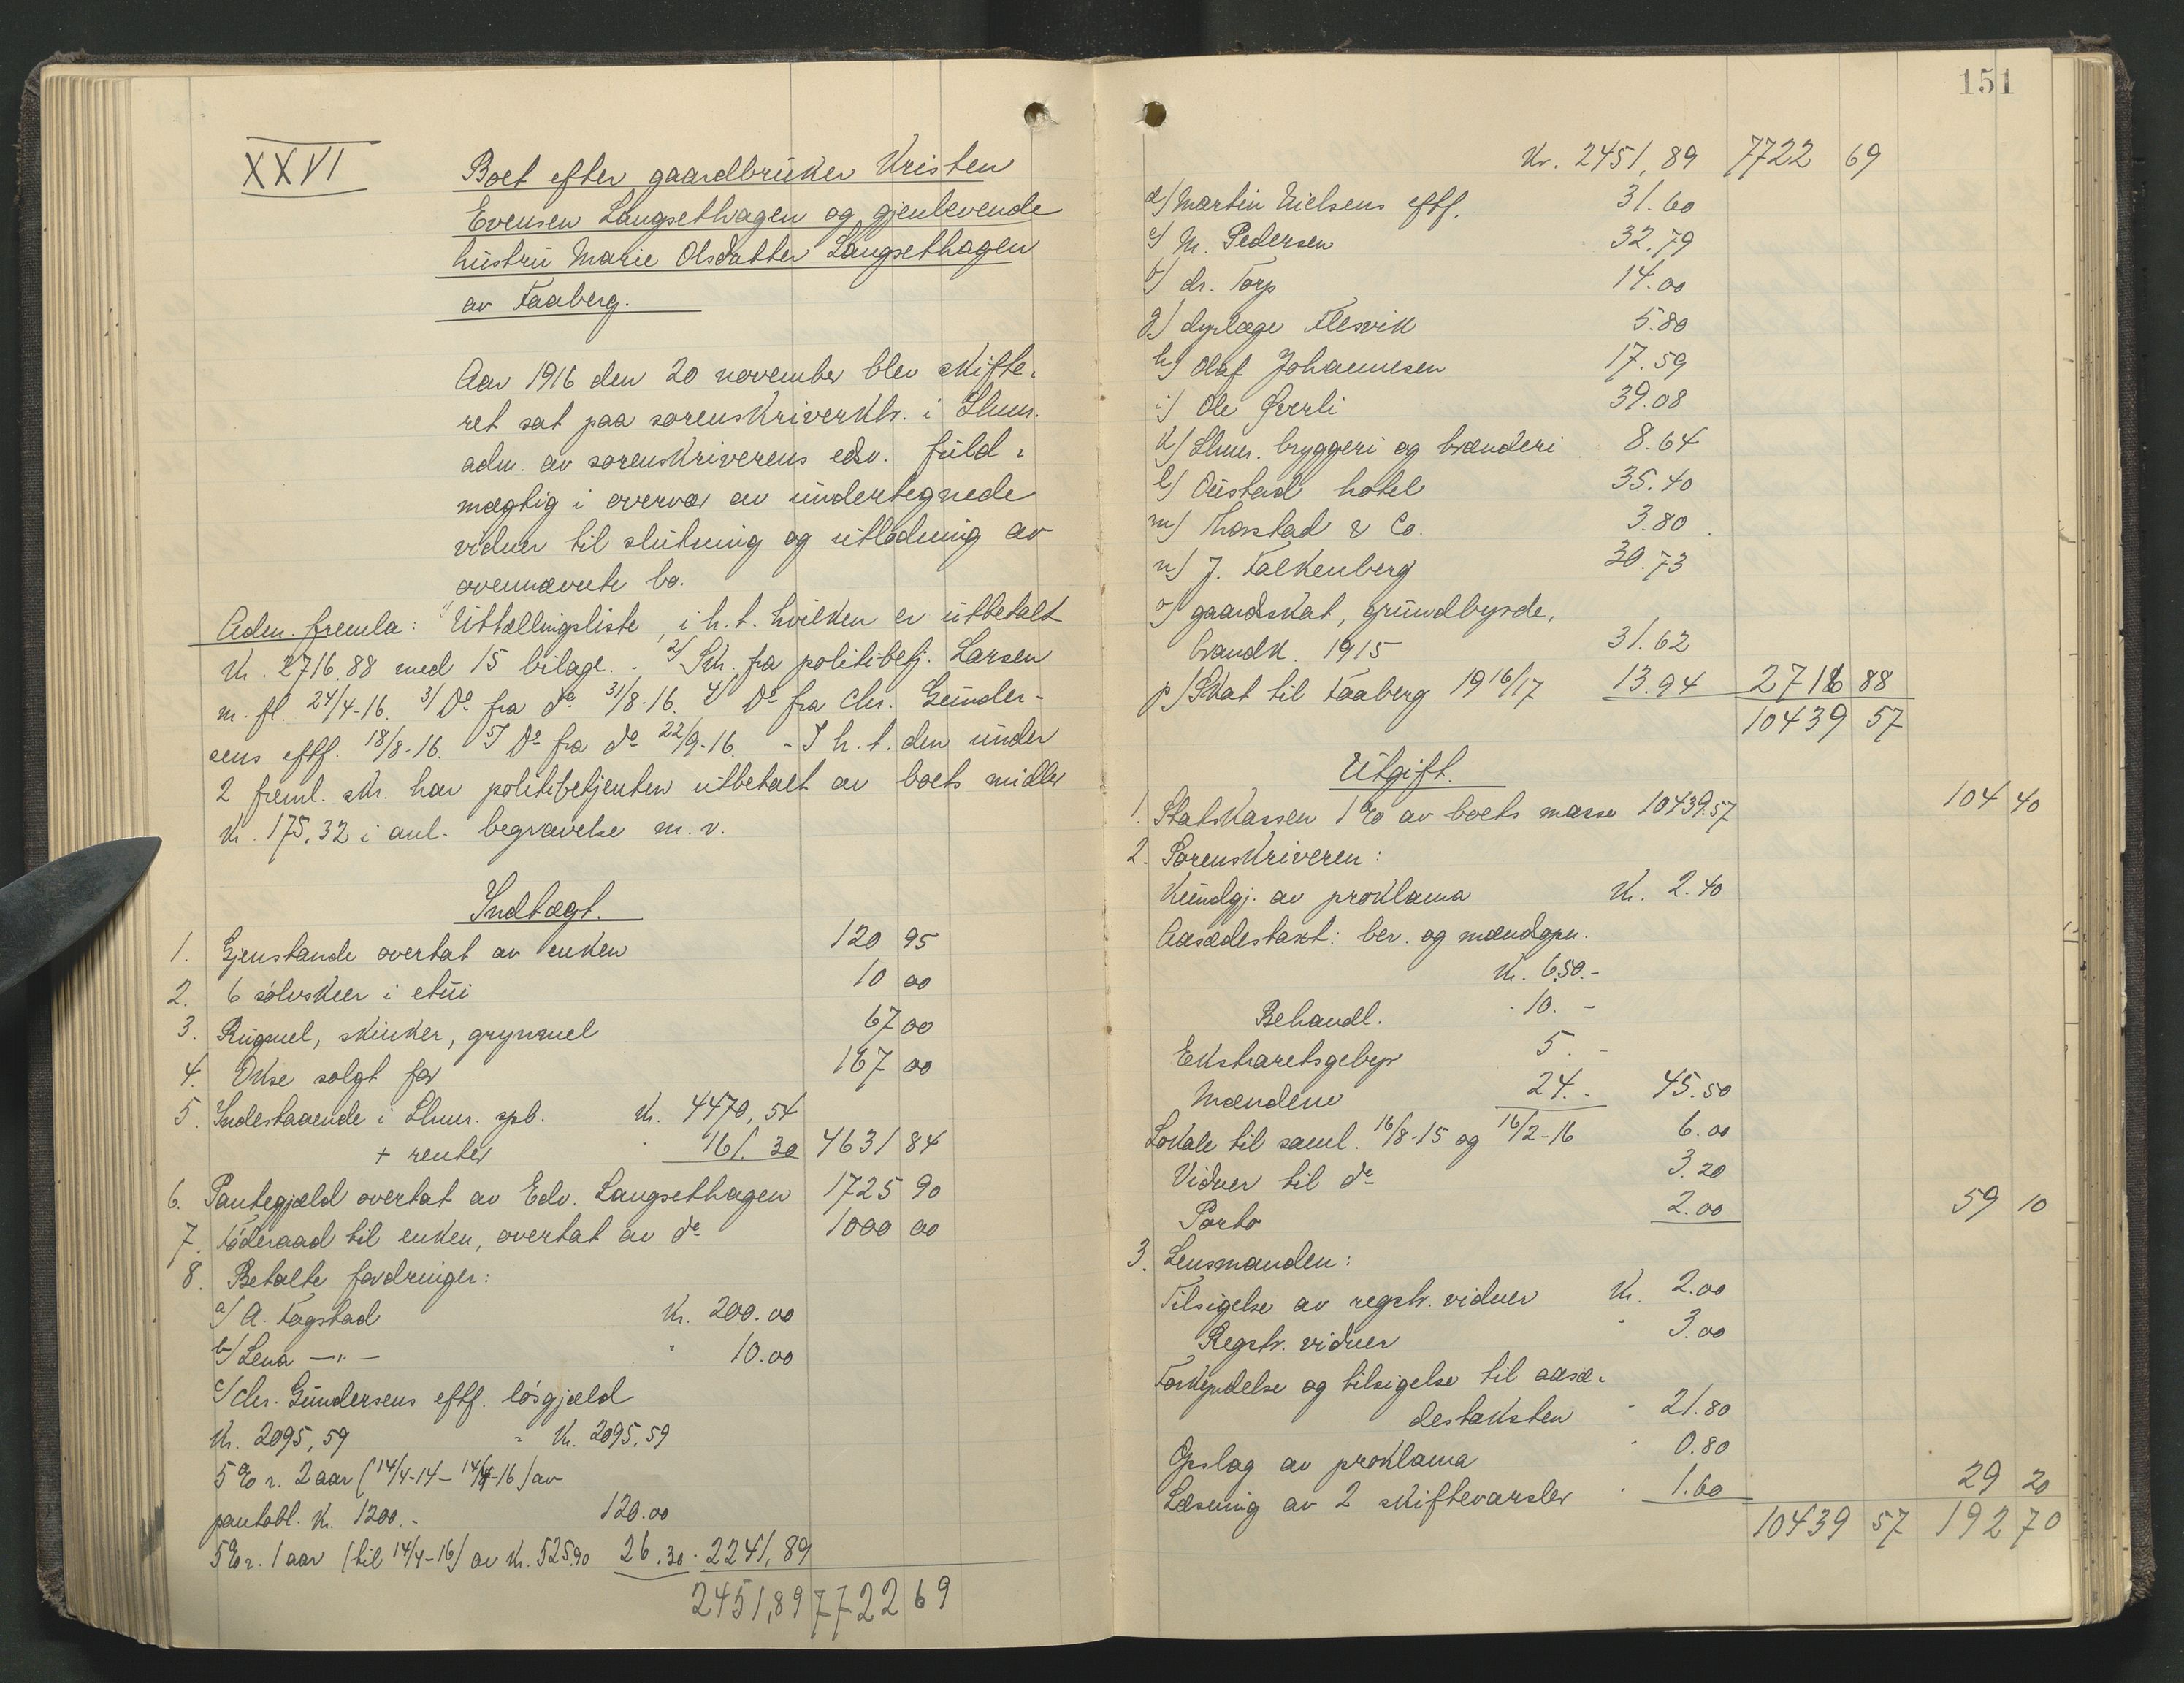 XXVI
Boet efter gaardbruker Kristen
Evensen Langsethagen og gjenlevende
hustru Marie Olsdatter Langsethagen
av Faaberg.
Aar 1916 den 20 november blev skifte-
ret sat paa sorenskriverktr. i Lhmr.
adm. av sorenskriverens edsv. fuld-
mægtig i overvær av undertegnede
vidner til slutning og utlodning av
ovennævnte bo.
Adm. fremla: 1/ Uttællingsliste, i h. t. hvilken er utbetalt
Kr. 2716.88 med 15 bilage. - 2/ Skr. fra politibetj. Larsen
m. fl. 24/4-16. 3/ Do fra do 31/8-16. 4/ Do fra Chr. Gunder-
sens eftf. 18/8-16. 5/ Do fra do 22/9-16. - I h. t. den under
2 freml. skr. har politibetjenten utbetalt av boets midler
Kr. 175,32 i anl. begravelse m. v.
Indtægt.
1. Gjenstande overtat av enken 120 95
2. 6 sølvskeer i etui 10 00
3. Rugmel, skinker, grynmel 67 00
4. Okse solgt for 167 00
5. Indestaaende i Lhmr. spb. Kr. 4470,54
+ renter " 161.30 4631 84
6. Pantegjæld overtat av Edv. Langsethagen 1725 90
7. Føderaad til enken, overtat av do 1000 00
8. Betalte fordringer:
a/ A. Fagstad Kr. 200.00
b/ Lena —"— " 10.00
c/ Chr. Gundersens eftf. løsgjæld
Kr. 2095,59 = Kr. 2095,59
5 % r. 2 aar (14/4-14 - 14/4-16) av
pantobl. Kr. 1200.- 120.00
5 % r. 1 aar (til 14/4-16) av Kr. 525.90 26.30 - 2241,89
2451,89 7722 69
151
Kr. 2451,89 7722 69
d/ Martin Nielsens eftf. 31.60
e/ M. Pedersen 32.79
f/ dr. Torp 14.00
g/ dyrlæge Flesvik 5.80
h/ Olaf Johannesen 17.59
i/ Ole Øverli 39.08
k/ Lhmr. bryggeri og brænderi 8.64
l/ Oustad hotel 35.40
m/ Thorstad & Co. 3.80
n/ J. Falkenberg 30.73
o/ gaardskat, grundbyrde,
brandk. 1915 31.62
p/ Skat til Faaberg 1916/17 13.94 2716 88
10439 57
Utgift.
1. Statskassen 1 % av boets masse 10439.57 104 40
2. Sorenskriveren:
Kundgj. av proklama Kr. 2.40
Aasædestaxt: ber. og mændsopn.
Kr. 6.50.-
Behandl. " 10.-
Ekstraretsgebyr 5.-
Mændene 24.- 45.50
Lokale til saml. 16/8-15 og 16/2-16 6.00
Vidner til do 3.20
Porto 2.00 59 10
3. Lensmanden:
Tilsigelse av regstr. vidner Kr. 2.00
Regstr. vidner " 3.00
Forkyndelse og tilsigelse til aasæ-
destaksten " 21.80
Opslag av proklama " 0.80
Læsning av 2 skiftevarsler " 1.60 29 20
10439 57 192 70